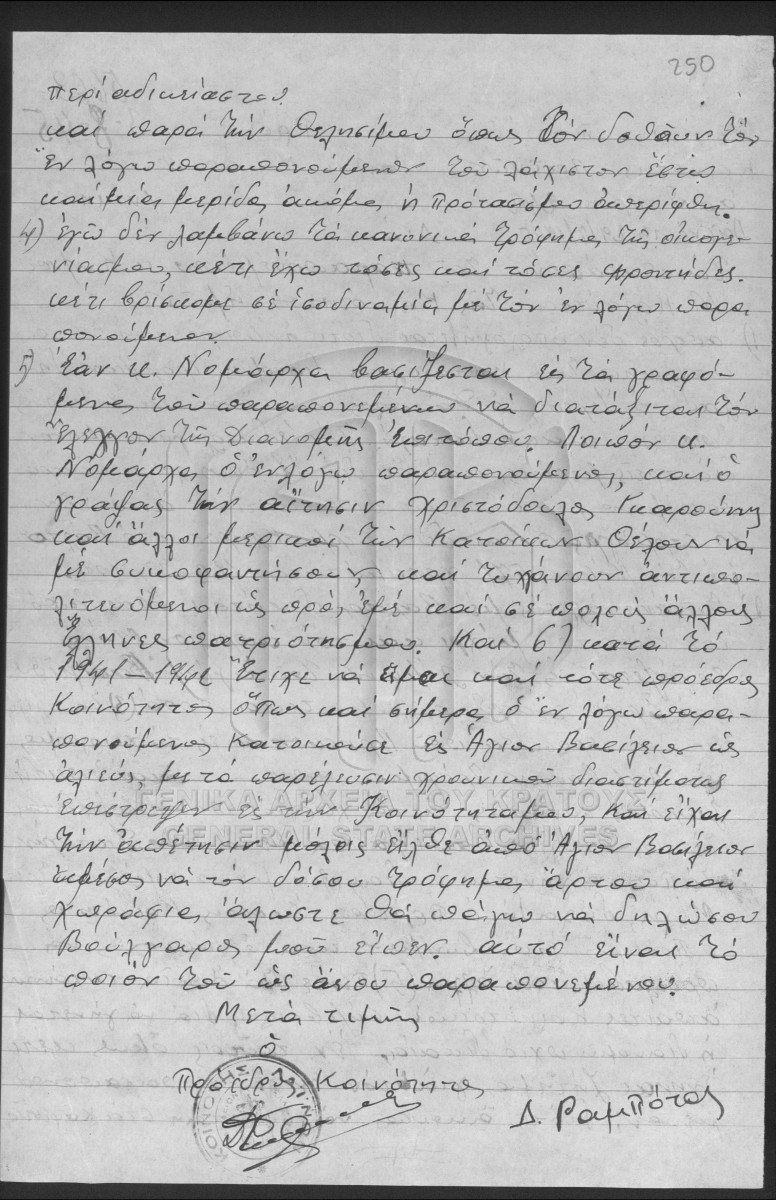 250
περί αδικείαστου.
καί παρά τήν θελησίμου ὅπως τόν δοθοῦν τόν
ἐν λόγω παραπονούμενον τοῦ λάχιστον ἔστω
καί μία μερίδα, ἀκόμα ἡ πρότασίμου ἀπερίφθη.
4) ἐγώ δέν λαμβάνω τά κανονικά τρόφημα τῆς οἰκογε-
νίασμου, κέτι ἔχω τόσες καί τόσες φροντήδες.
κέτι βρίσκομε σέ ἰσοδιναμία μέ τόν ἐν λόγω παρα
πονούμενον.
5) Ἐάν κ. Νομάρχα βασίζεσται εἰς τά γραφό-
μενα τοῦ παραπονεμένου νά διατάξιται τόν
ἔλεγχον τῆς Διανομῆς ἐπιτόπου. Λοιπόν κ.
Νομάρχα ὁ ἐν λόγω παραπονούμενος, καί ὁ
γράψας τήν αἴτησιν Χριστόδουλος Γκαρούνης
καί ἄλλοι μερικοί τῶν Κατοίκων θέλουν νά
μέ συκοφαντήσουν, καί τυχάνουν ἀντιπο-
λιτευόμενοι ὡς πρός ἐμέ καί σέ πολούς ἄλλους
Ἕλληνες πατριότησμου. Καί 6) κατά τό
1941-1942 ἔτιχε νά εἶμαι καί τότε πρόεδρος
Κοινότητος ὅπως καί σήμερα, ὁ ἐν λόγω παρα-
πονούμενος κατοικοῦσε εἰς Ἅγιον Βασίλειον ὡς
ἁλιεύς, μετά παρέλευσιν χρονικοῦ διαστίματος
ἐπέστρεψεν εἰς τήν Κοινότηταμου, καί εἶχαι
τήν ἀπέτησιν μόλις εἶλθε ἀπό Ἅγιον Βασίλειον
ἀμέσος νά τόν δόσου τρόφημα, ἄρτου καί
χωράφια, ἀλωστε θά πάγω νά δηλώσου
Βούλγαρος μοῦ εἶπεν. αὐτό εἶναι τό
ποιόν τοῦ ὡς ἄνου παραπονεμένου.
Μετά τιμῆς
ὁ
Πρόεδρος Κοινότητος
Δ. Ραμπότας
ΓΕΝΙΚΑ ΑΡΧΕΙΑ ΤΟΥ ΚΡΑΤΟΥΣ
GENERAL STATE ARCHIVES